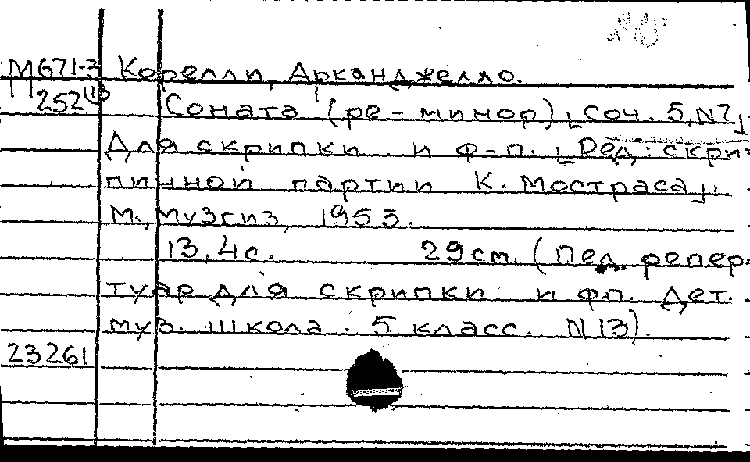 М671-3 Корелли, Арканджелло.
252(1) Соната (ре-минор), [соч. 5, N7]
Для скрипки и ф-п. [Ред. скри-
пичной партии К. Мостраса].
М., Музгиз, 1953.
13, 4с. 29см. (Пед. репер-
туар для скрипки и фп. Дет.
муз. школа. 5 класс. N13).
23261